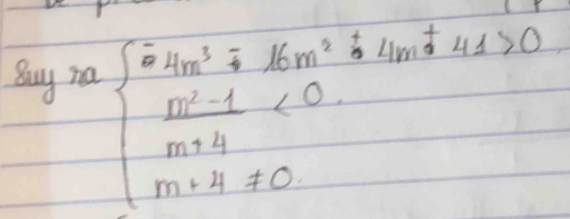 Suy ra { -4m³ - 16m² + 4m + 41 > 0
m² - 1 / m + 4 < 0.
m + 4 ≠ 0.